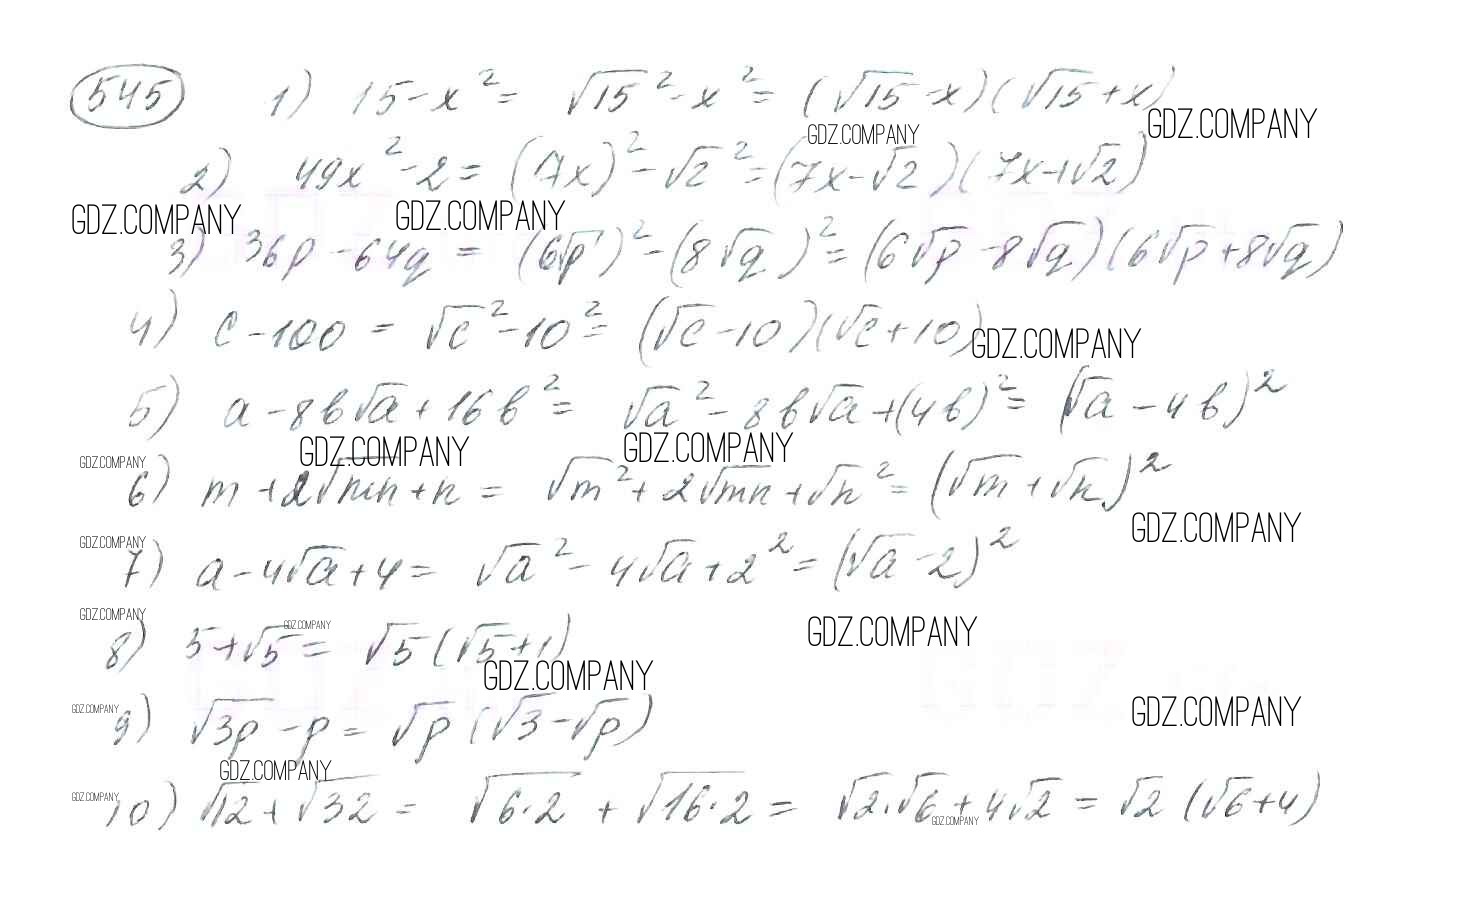 545 1) 15-x² = √15² - x² = (√15-x)(√15+x)
GDZ.COMPANY GDZ.COMPANY
2) 49x² - 2 = (7x)² - √2² = (7x-√2)(7x+√2)
GDZ.COMPANY GDZ.COMPANY
3) 36p - 64q = (6√p)² - (8√q)² = (6√p - 8√q)(6√p + 8√q)
4) c - 100 = √c² - 10² = (√c - 10)(√c + 10)
GDZ.COMPANY
5) a - 8b√a + 16b² = √a² - 8b√a + (4b)² = (√a - 4b)²
GDZ.COMPANY GDZ.COMPANY GDZ.COMPANY
6) m + 2√mn + n = √m² + 2√mn + √n² = (√m + √n)²
GDZ.COMPANY
GDZ.COMPANY
7) a - 4√a + 4 = √a² - 4√a + 2² = (√a - 2)²
GDZ.COMPANY GDZ.COMPANY GDZ.COMPANY
8) 5 + √5 = √5 (√5 + 1)
GDZ.COMPANY
GDZ.COMPANY GDZ.COMPANY
9) √3p - p = √p (√3 - √p)
GDZ.COMPANY
GDZ.COMPANY
10) √12 + √32 = √6·2 + √16·2 = √2·√6 + 4√2 = √2 (√6 + 4)
GDZ.COMPANY